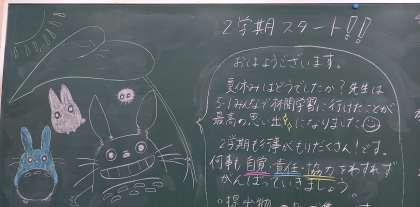 2学期スタート!!
おはようございます。
夏休みはどうでしたか?先生は
5-1みんなで林間学習に行けたことが
最高の思い出になりました
2学期も行事がもりだくさん!です。
何事も自覚・責任・協力をわすれず
がんばっていきましょう